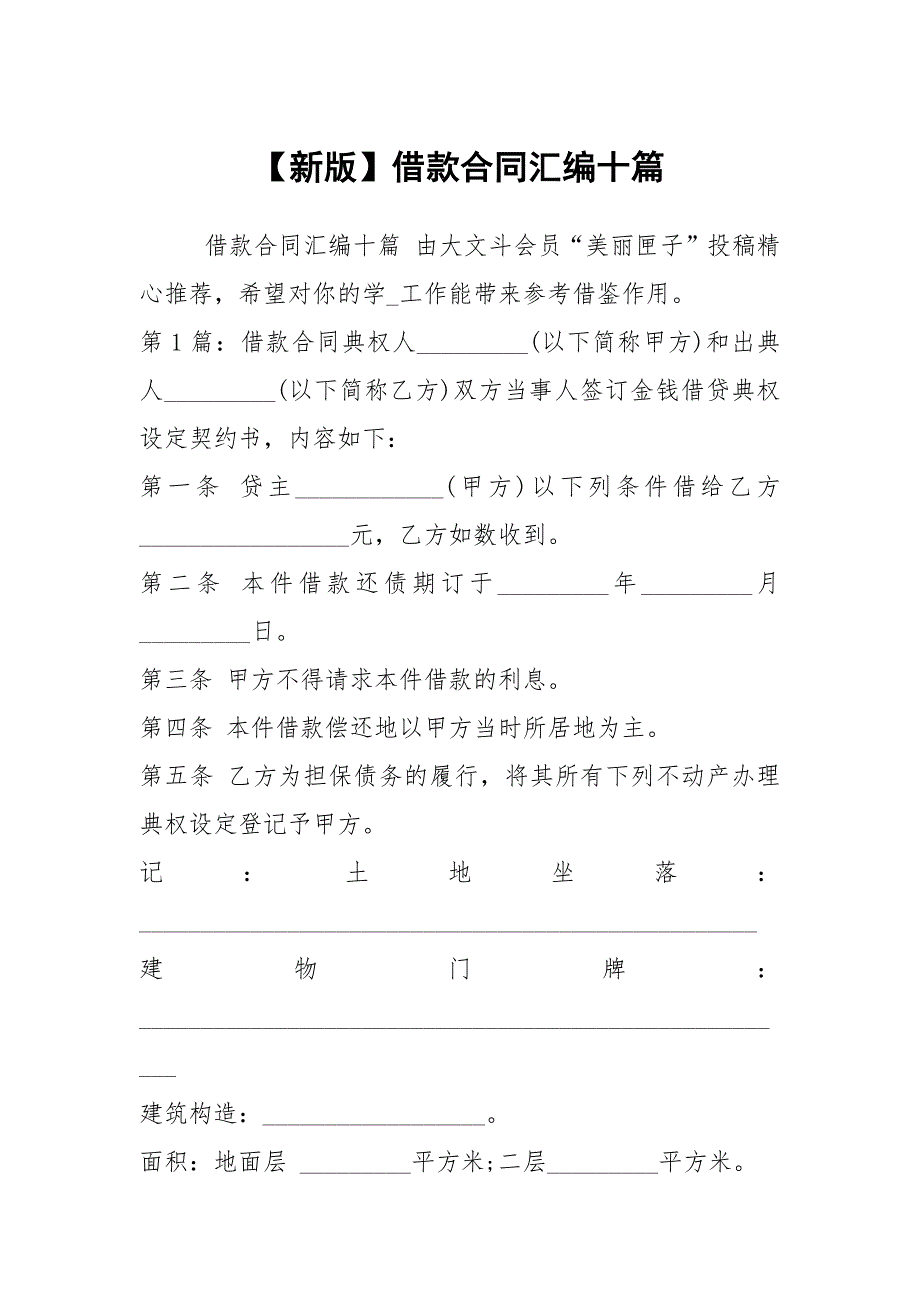 【新版】借款合同汇编十篇
借款合同汇编十篇 由大文斗会员“美丽匣子”投稿精
心推荐，希望对你的学_工作能带来参考借鉴作用。
第1篇：借款合同典权人_________(以下简称甲方)和出典
人_________(以下简称乙方)双方当事人签订金钱借贷典权
设定契约书，内容如下：
第一条 贷主____________(甲方)以下列条件借给乙方
_________________元，乙方如数收到。
第二条 本件借款还债期订于_________年_________月
_________日。
第三条 甲方不得请求本件借款的利息。
第四条 本件借款偿还地以甲方当时所居地为主。
第五条 乙方为担保债务的履行，将其所有下列不动产办理
典权设定登记予甲方。
记：土地坐落：
__________________________________________________
建物门牌：
___________________________________________________
___
建筑构造：__________________。
面积：地面层 _________平方米;二层_________平方米。